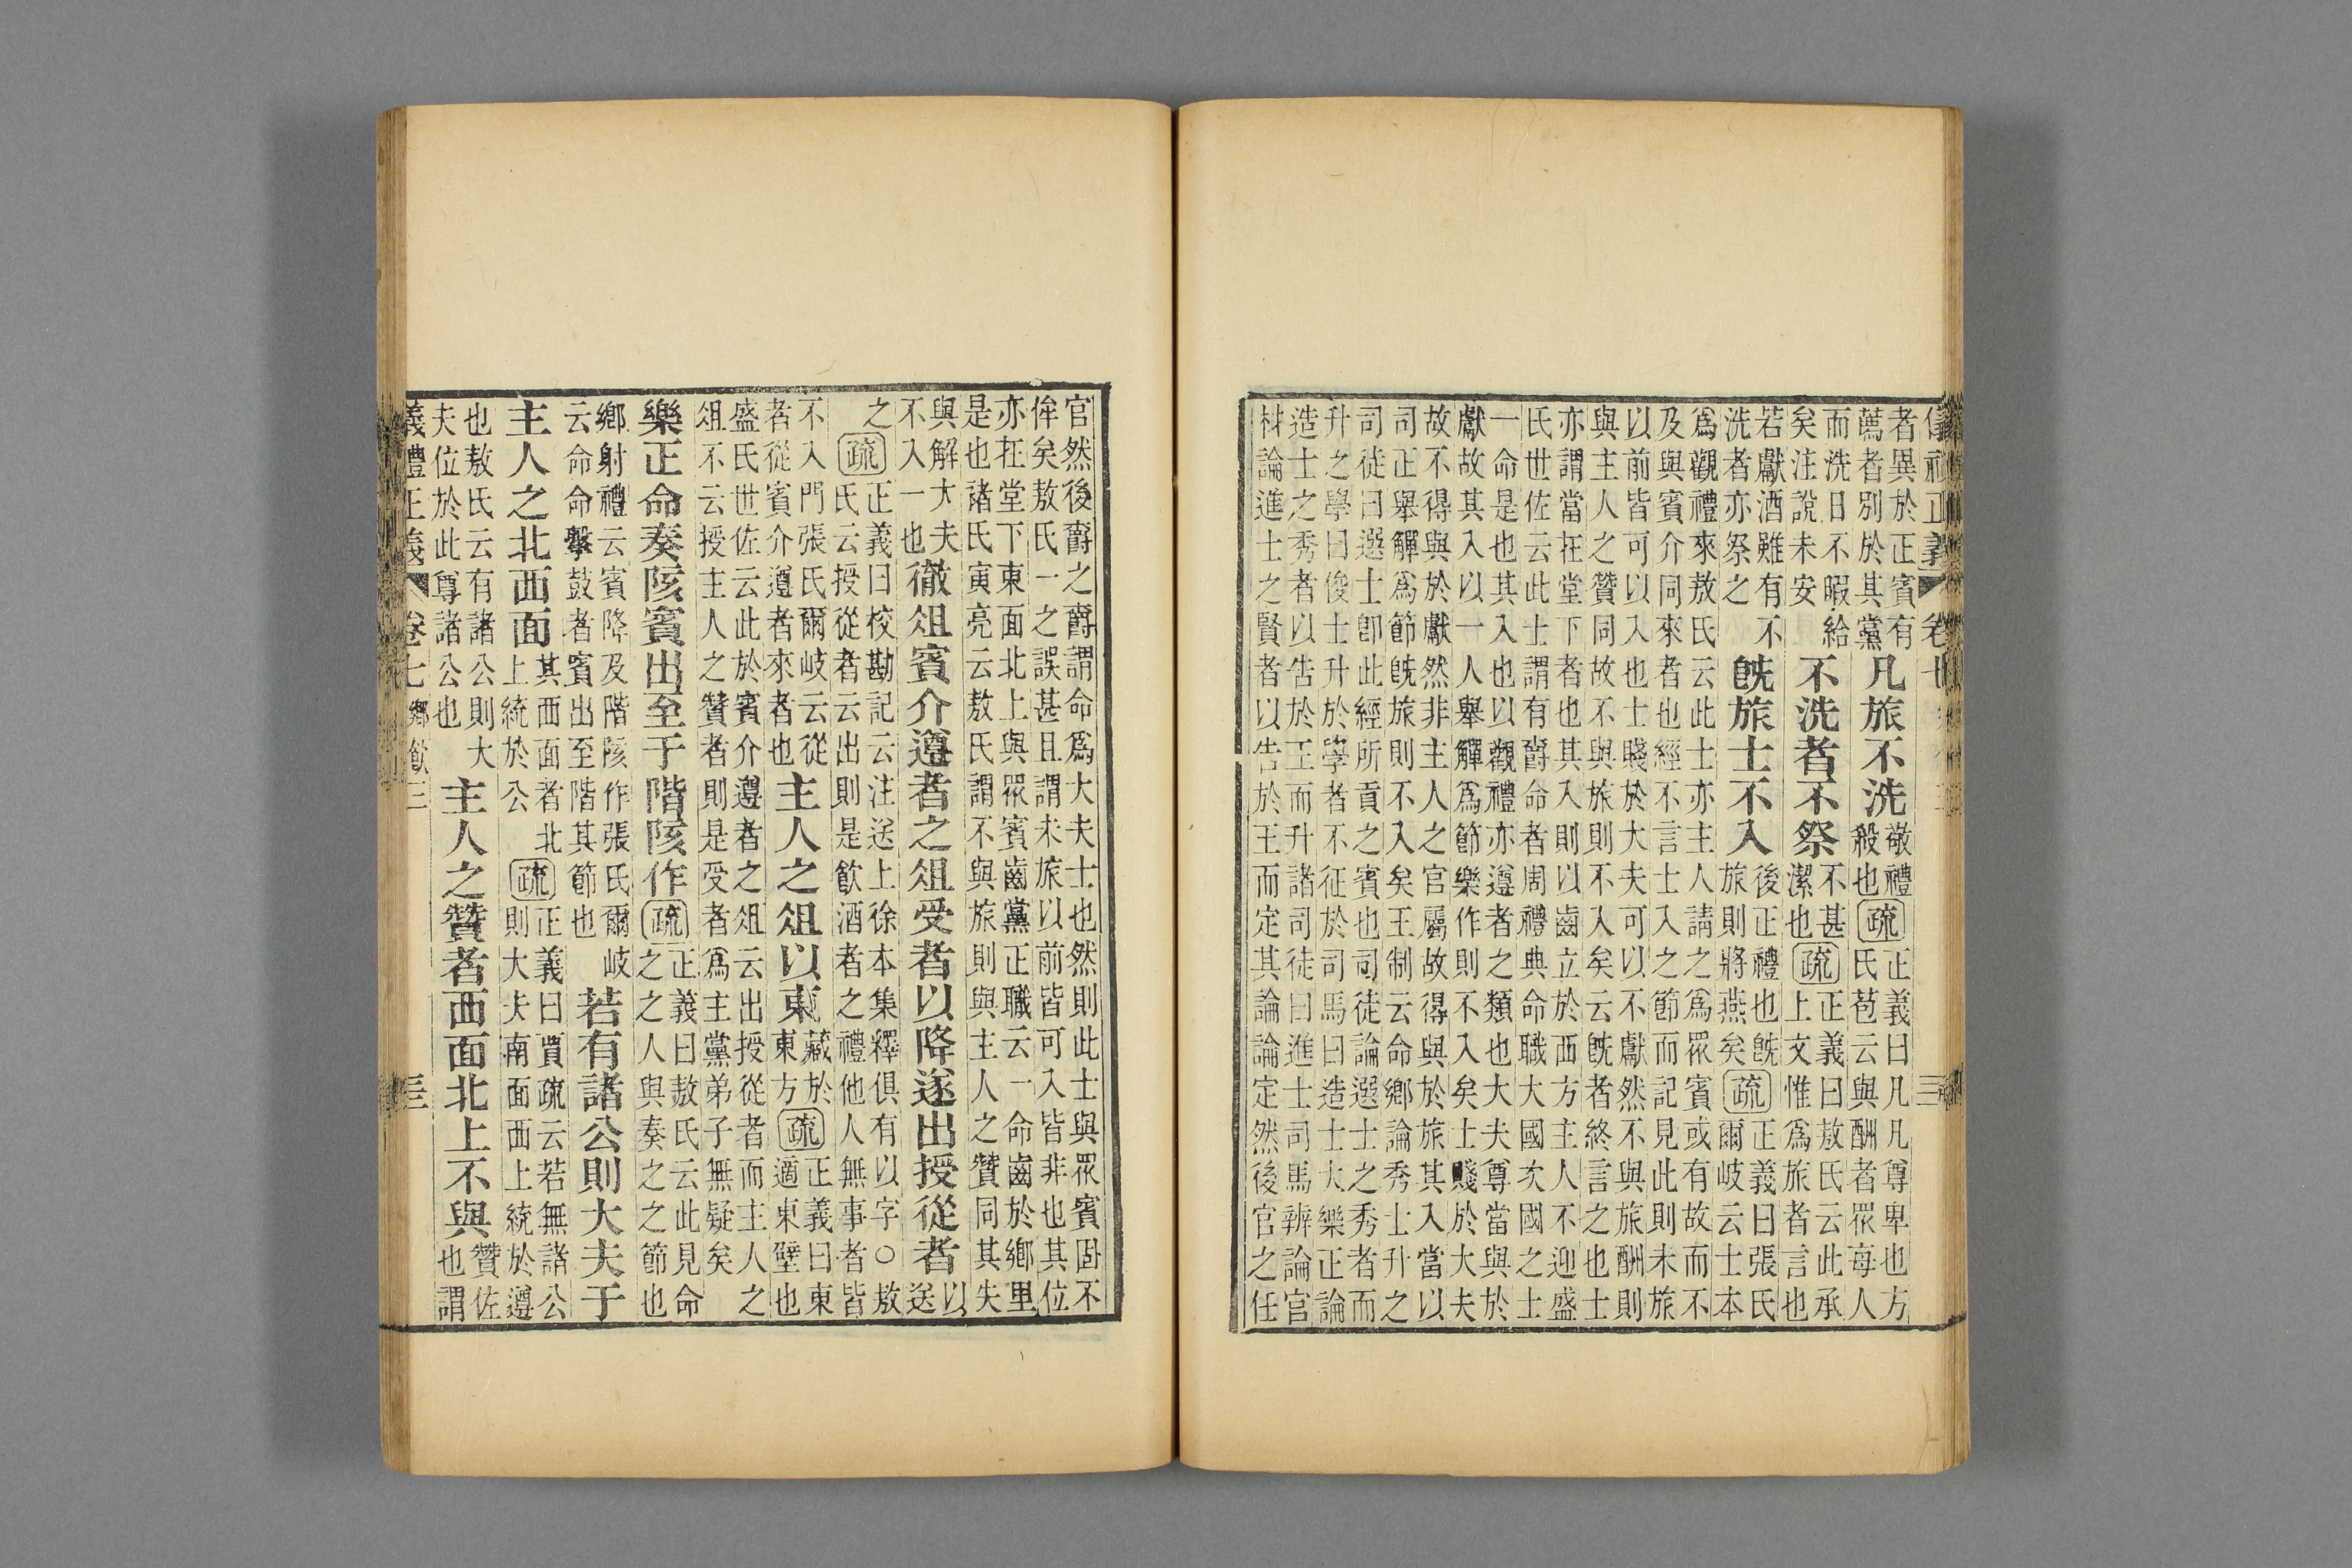 儀禮正義 卷七
者異於正賓有
薦者別於其黨
凡旅不洗
敬禮
殺也
疏
正義曰凡凡尊卑也方
氏苞云與酬者眾每人
而洗日不暇給
矣注說未安
不洗者不祭
不甚
潔也
疏
正義曰敖氏云此承
上文惟爲旅者言也
若獻酒雖有不
洗者亦祭之
旣旅士不入
後正禮也旣
旅則將燕矣
疏
正義曰張氏
爾岐云士本
爲觀禮來敖氏云此士亦主人請之爲眾賓或有故而不
及與賓介同來者也經不言士入之節而記見此則未旅
以前皆可以入也士賤於大夫可以不獻然不與旅酬則
與主人之贊同故不與旅則不入矣云旣者終言之也士
亦謂當在堂下者也其入則以齒立於西方主人不迎盛
氏世佐云此士謂有爵命者周禮典命職大國次國之士
一命是也其入也以觀禮亦遵者之類也大夫尊當與於
獻故其入以一人舉觶爲節樂作則不入矣士賤於大夫
故不得與於獻然非主人之官屬故得與於旅其入當以
司正舉觶爲節旣旅則不入矣王制云命鄉論秀士升之
司徒曰選士卽此經所貢之賓也司徒論選士之秀者而
升之學曰俊士升於學者不征於司馬曰造士大樂正論
造士之秀者以告於王而升諸司徒曰進士司馬辨論官
材論進士之賢者以告於王而定其論論定然後官之任
官然後爵之爵謂命爲大夫士也然則此士與眾賓固不
侔矣敖氏一之誤甚且謂未旅以前皆可入皆非也其位
亦在堂下東面北上與眾賓齒黨正職云一命齒於鄉里
是也諸氏寅亮云敖氏謂不與旅則與主人之贊同其失
與解大夫
不入一也
徹俎賓介遵者之俎受者以降遂出授從者
以
送
之
疏
正義曰校勘記云注送上徐本集釋俱有以字○敖
氏云授從者云出則是飲酒者之禮他人無事者皆
不入門張氏爾岐云從
者從賓介遵者來者也
主人之俎以東
藏於
東方
疏
正義曰東
適東壁也
盛氏世佐云此於賓介遵者之俎云出授從者而主人之
俎不云授主人之贊者則是受者爲主黨弟子無疑矣
樂正命奏陔賓出至于階陔作
疏
正義曰敖氏云此見命
之之人與奏之之節也
鄉射禮云賓降及階陔作張氏爾岐
云命命擊鼓者賓出至階其節也
若有諸公則大夫于
主人之北西面
其西面者北
上統於公
疏
正義曰賈疏云若無諸公
則大夫南面西上統於遵
也敖氏云有諸公則大
夫位於此尊諸公也
主人之贊者西面北上不與
贊佐
也謂
義禮正義 卷七 鄉飲三